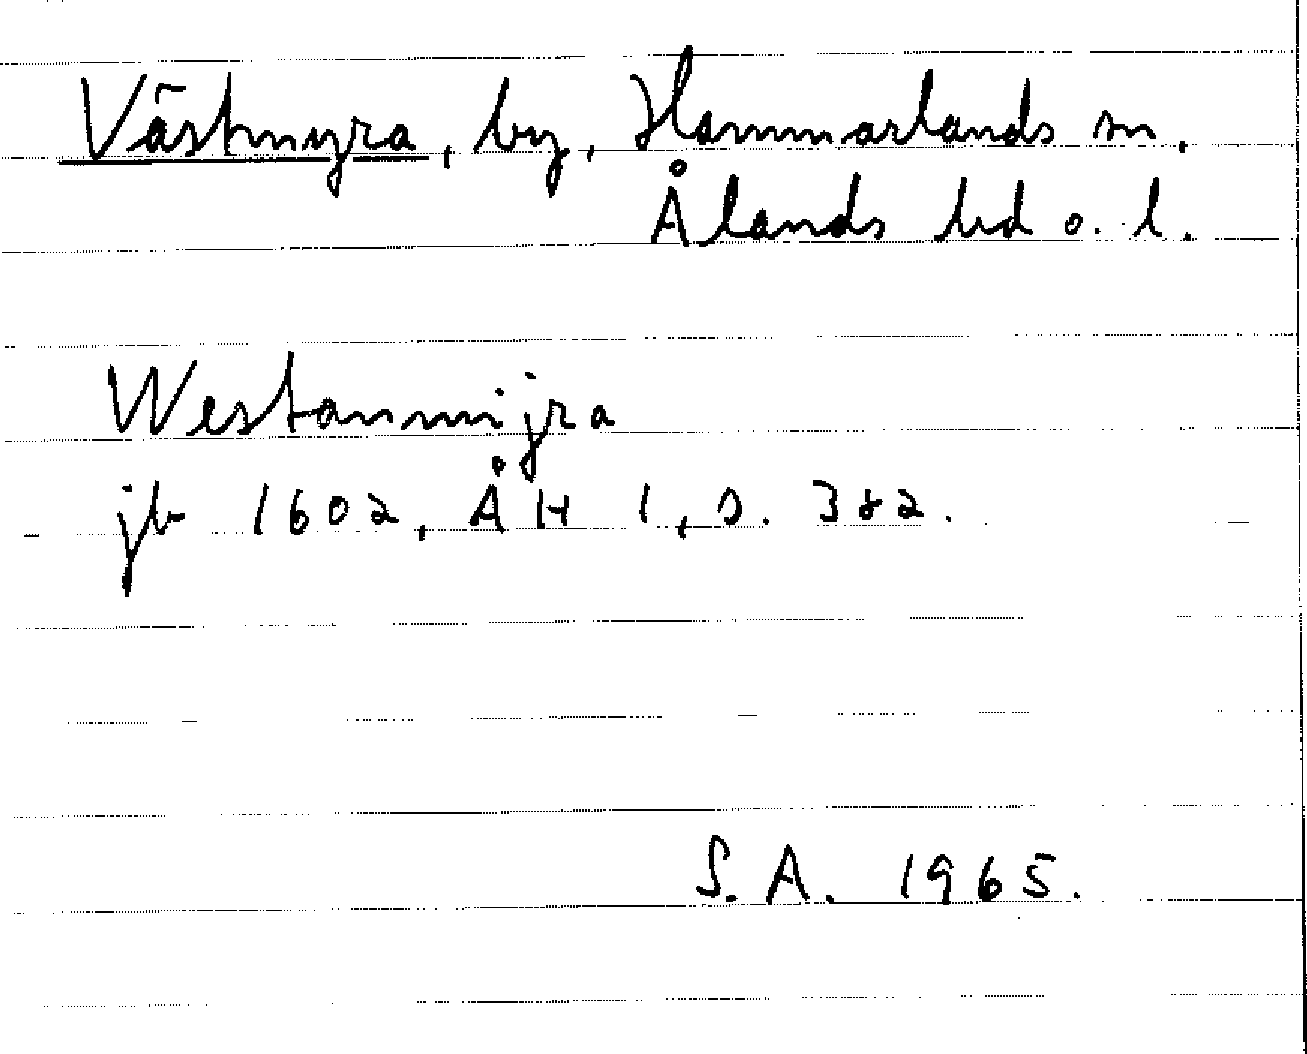 Västmyra, by, Hammarlands sn.
Ålands hd o. l.
Westanmijra
jb 1602, ÅH 1, s. 382.
S. A. 1965.